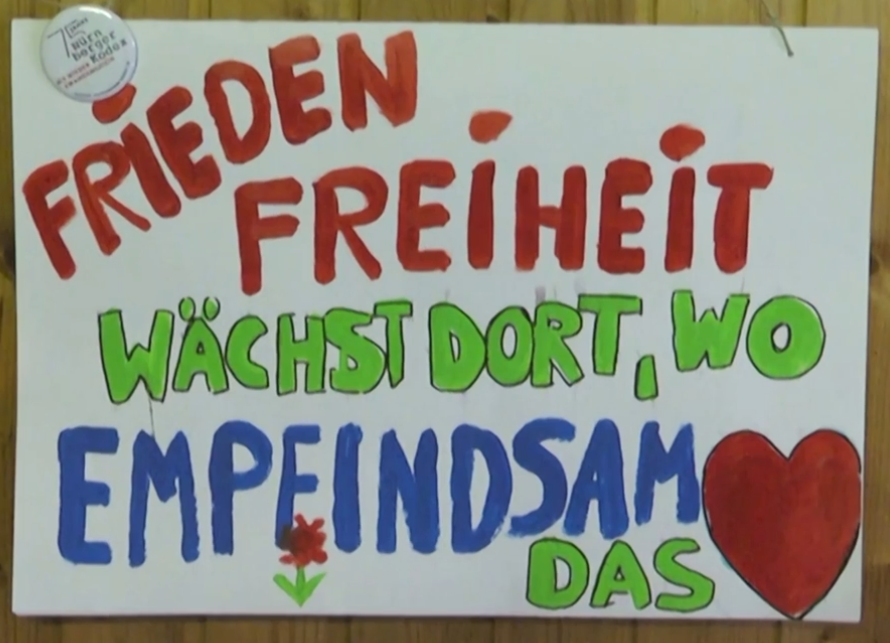 75 JAHRE
Nürn
berger
Kodex
FRiEDEN
FREiHEiT
WÄCHST DORT, WO
EMPFINDSAM
DAS